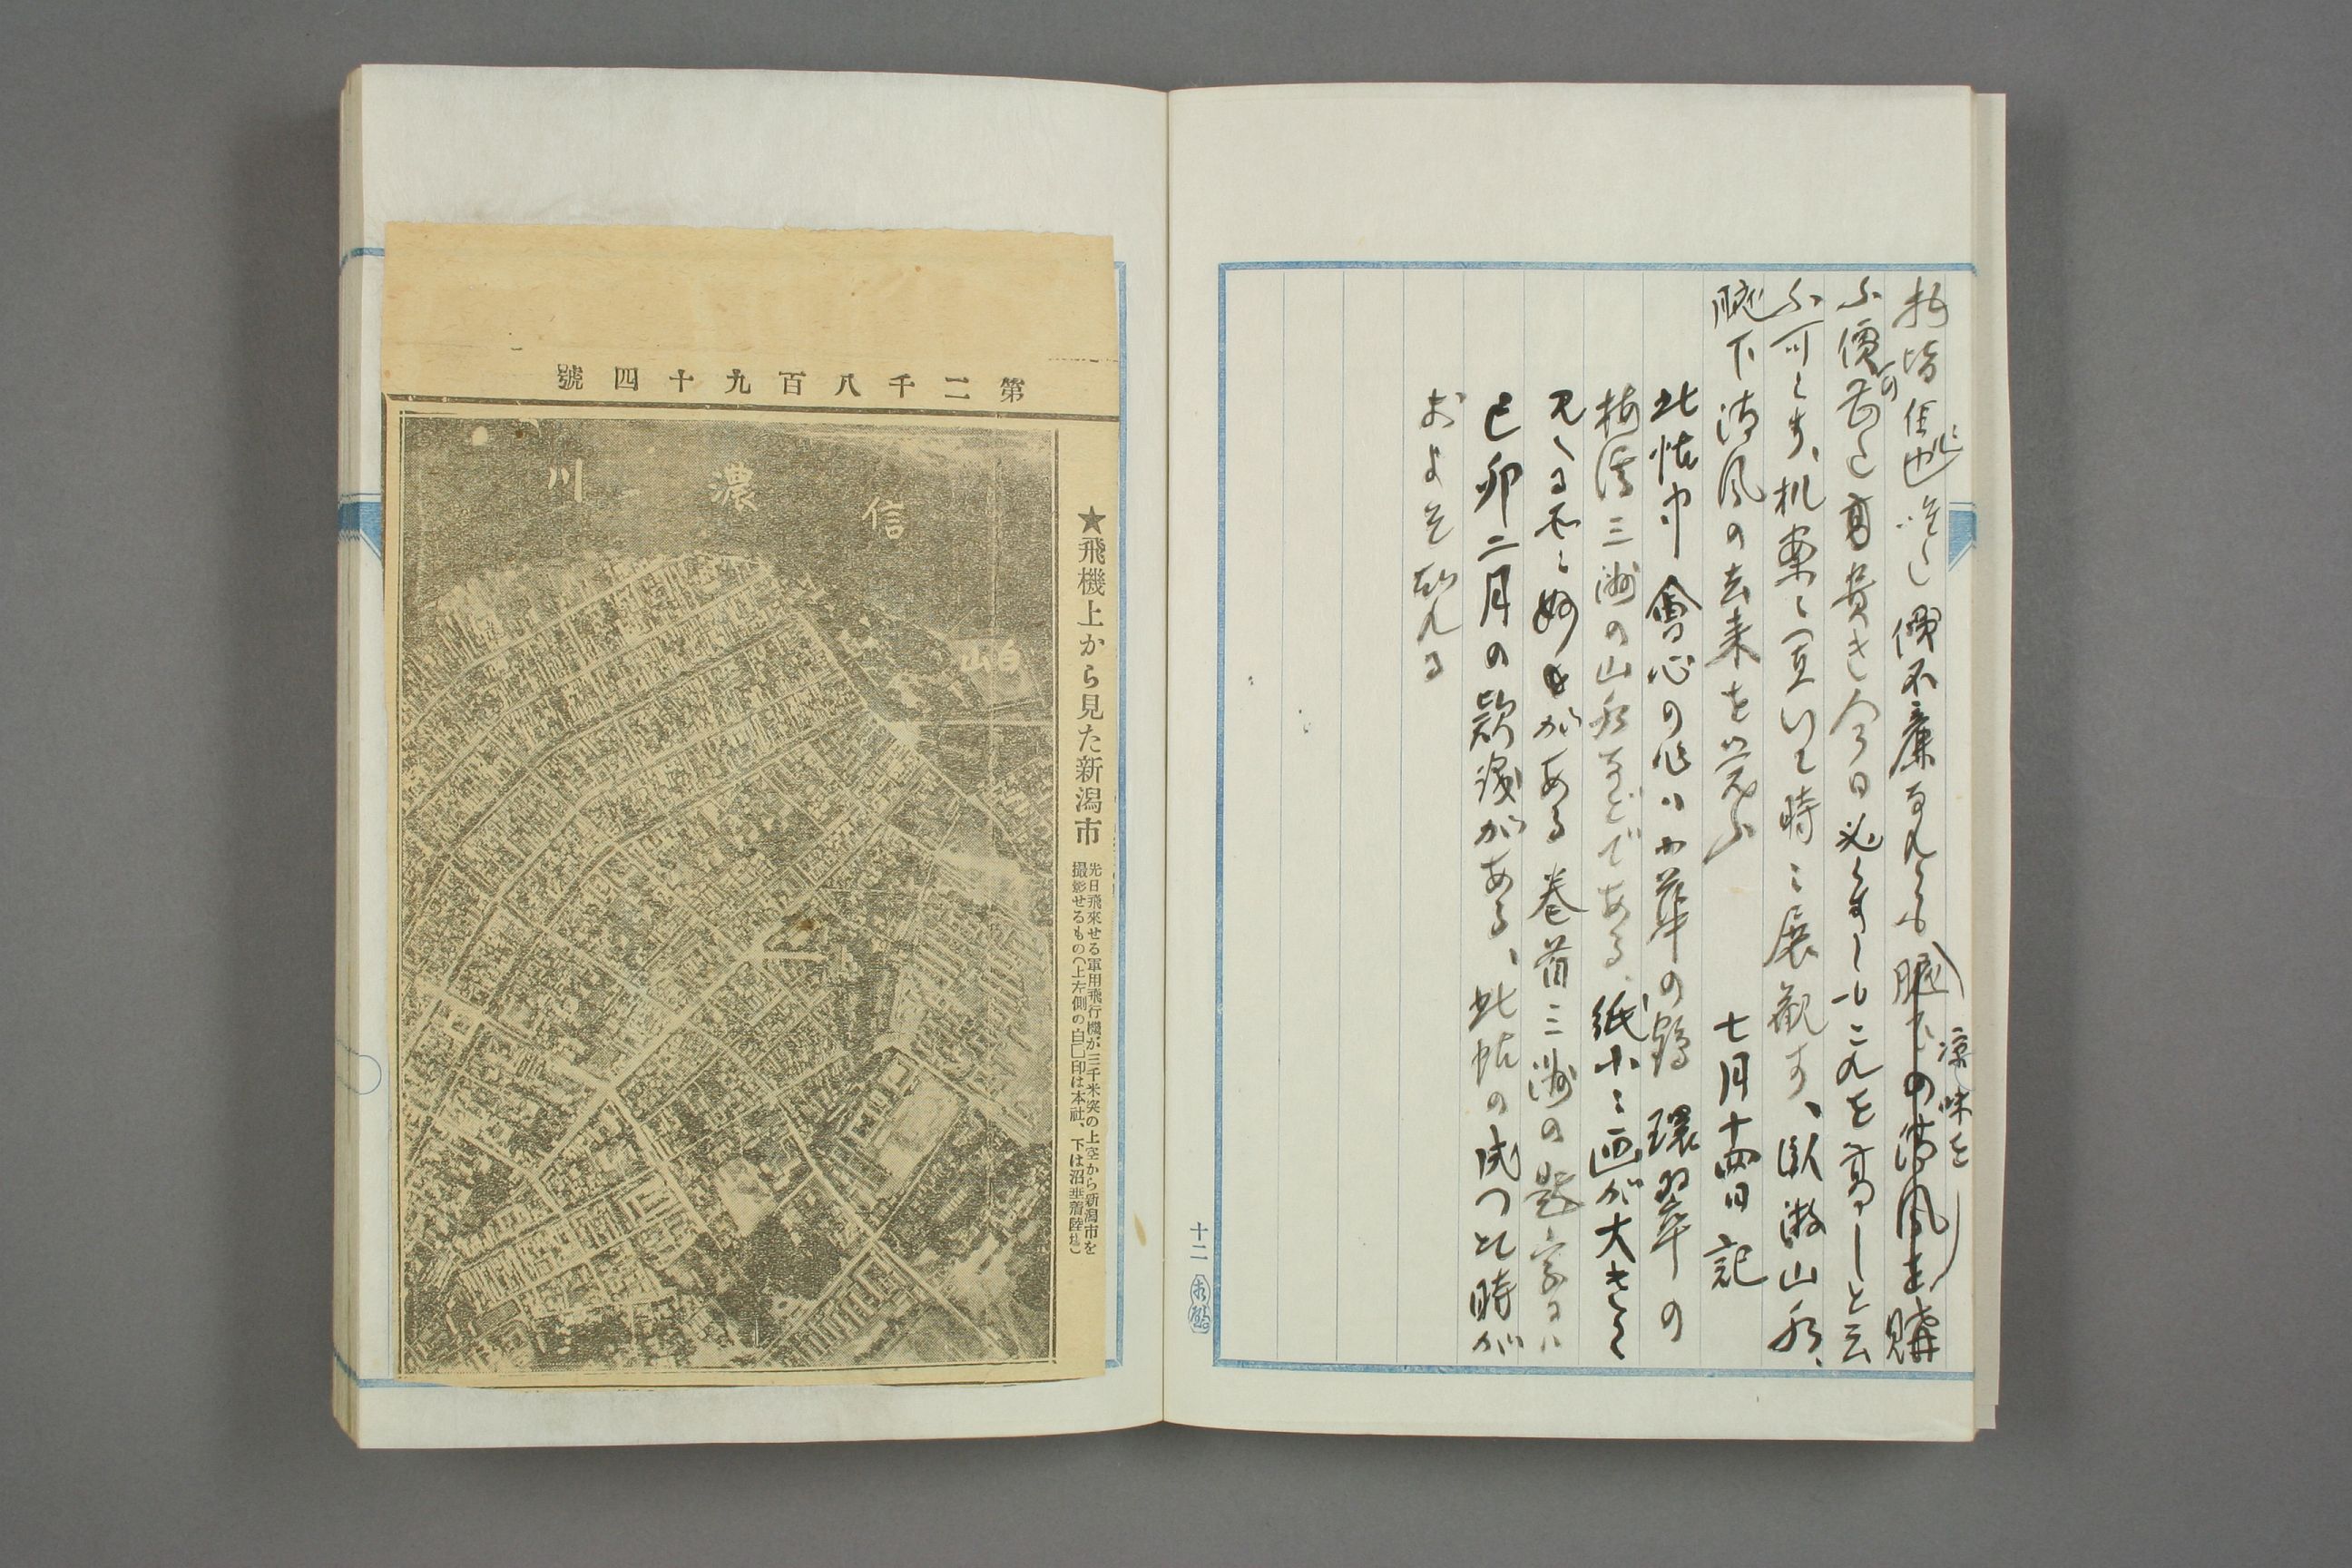 拵皆佳也 唯し價不廉なれども腕下の清風を購
涼味を
ふ價の
高貴き今日必ずしもこれを高しと云
ふ可らず、机案に置いて時に展観す、臥遊山水、
腕下清風の去来を覚ふ
七月十四日記
此帖中會心の作は
華の鶴 環翠の
梅渓 三洲の山水などである、紙小に画が大きく
見くるに妙がある 巻首三洲の題字には
己卯二月の款識がある、此帖の成つた時が
およそ知れる
十二
第二千八百九十四號
★飛機上から見た新潟市
先日飛來せる軍用飛行機が三千米突の上空から新潟市を
撮影せるもの(上左側の白□印は本社、下は沼垂着陸場)
信濃川
白山